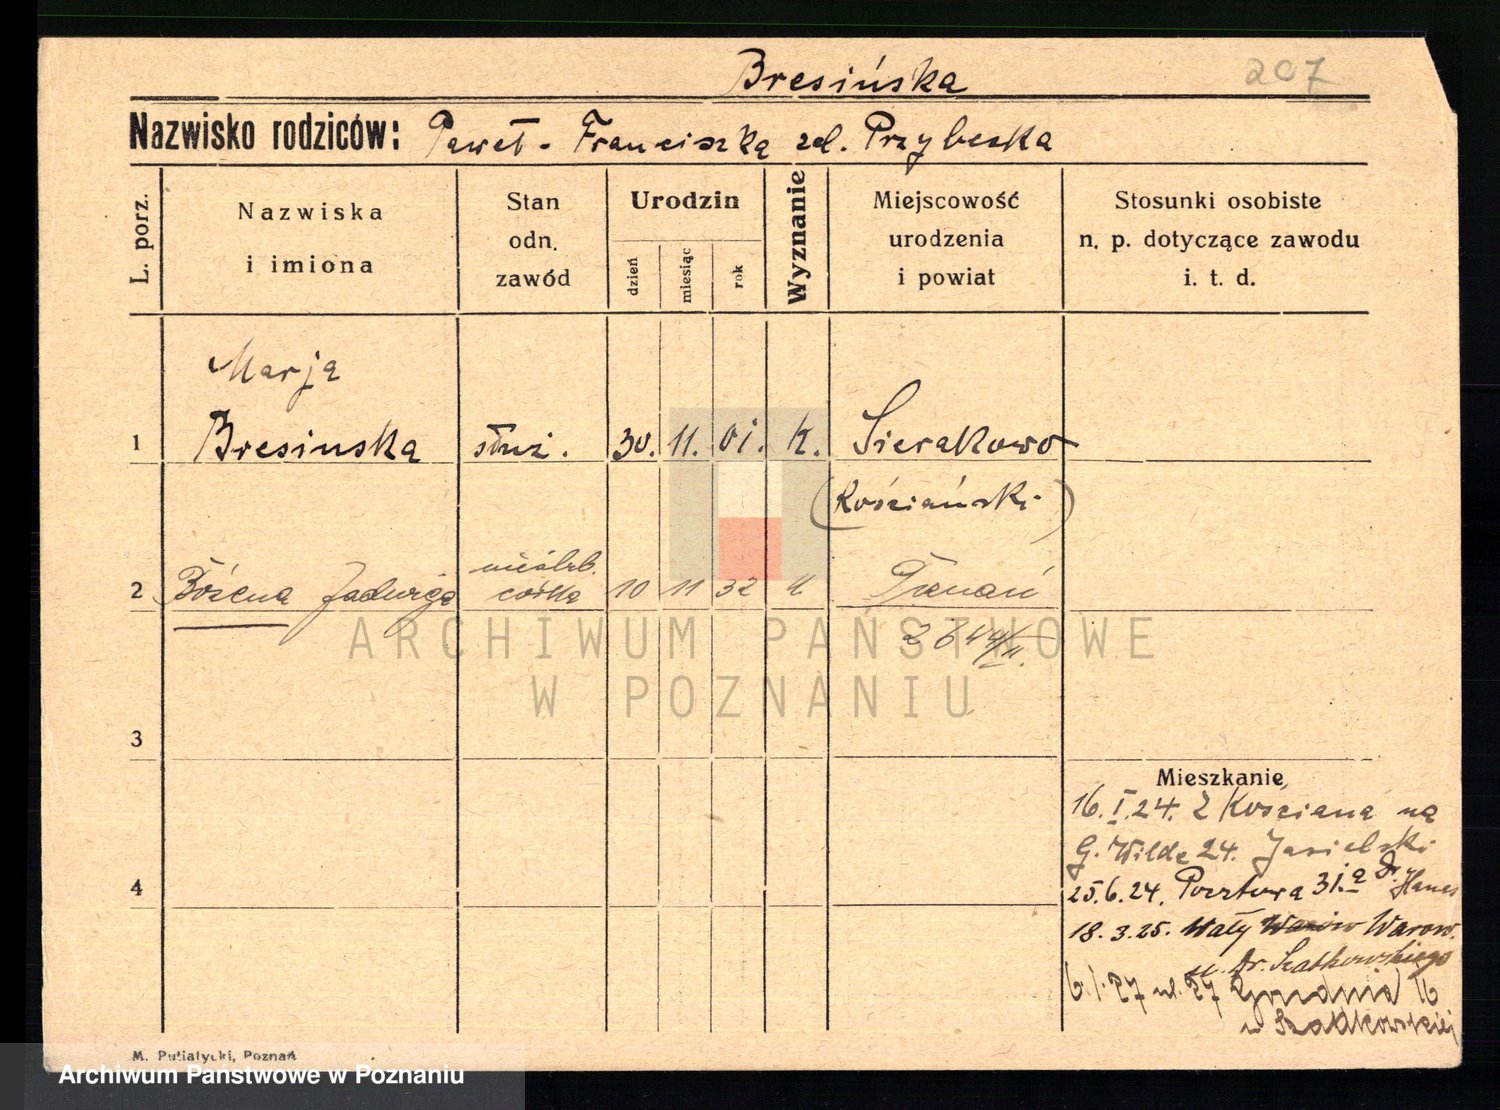 Bresińska
207
Nazwisko rodziców: Paweł - Franciszka zd. Przybeska
L. porz.
Nazwiska
i imiona
Stan
odn.
zawód
Urodzin
dzień
miesiąc
rok
Wyznanie
Miejscowość
urodzenia
i powiat
Stosunki osobiste
n. p. dotyczące zawodu
i. t. d.
Marja
1 Bresinska służ. 30. 11. 01. k. Sierakowo
(Kościański)
nieślub.
2 Bożena Jadwiga córka 10 11 32 k Poznań
ARCHIWUM PAŃSTWOWE
W POZNANIU
3
Mieszkanie
16.I.24. Z Kościana na
G. Wilde 24. Jasielski
4
25.6.24. Pocztowa 31.a Dr.
18.3.25. Wały Warow.
u. Dr. Szatkowskiego
6.1.27 ul. 27 Grudnia 16
w Szatkowskiej
M. Putiatycki, Poznań
Archiwum Państwowe w Poznaniu